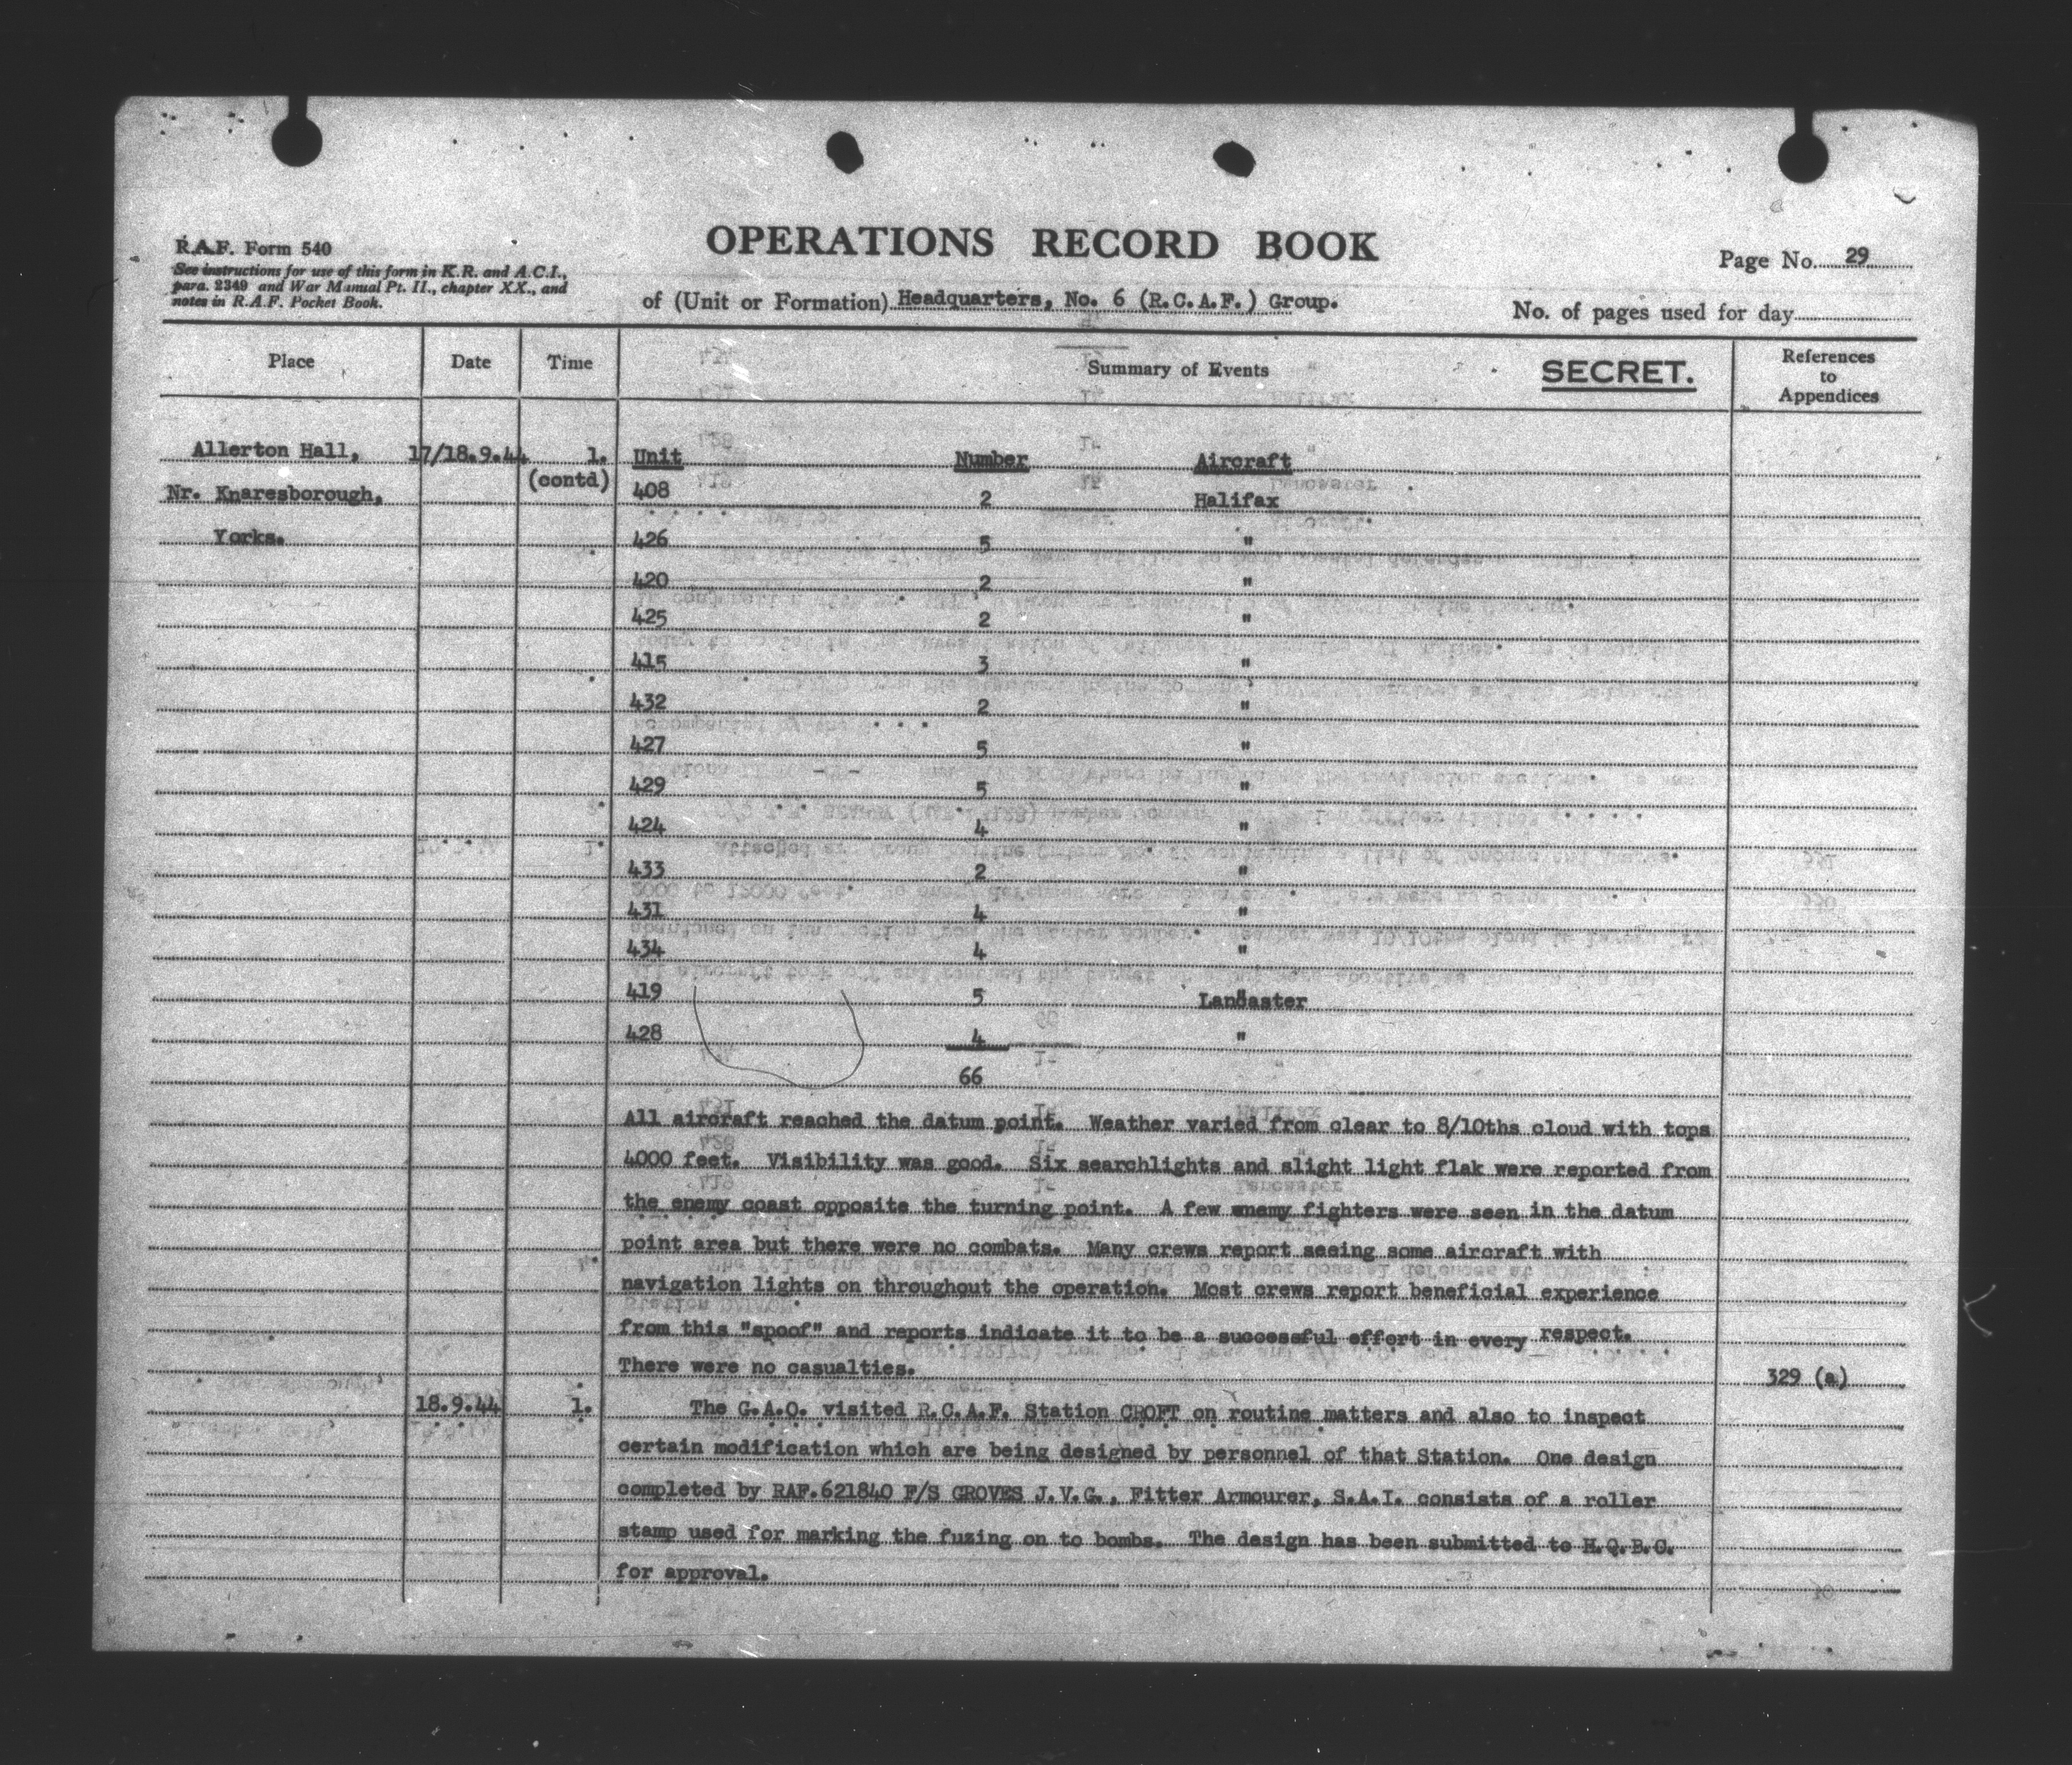 OPERATIONS RECORD BOOK
R.A.F. Form 540
See instructions for use of this form in K.R. and A.C.I.,
para. 2349 and War Manual Pt. II., chapter XX., and
notes in R.A.F. Pocket Book.
Page No. 29
of (Unit or Formation) Headquarters, No. 6 (R.C.A.F.) Group.
No. of pages used for day
Place Date Time Summary of Events SECRET. References to Appendices
Allerton Hall, 17/18.9.44 1. Unit Number Aircraft
Nr. Knaresborough, (contd) 408 2 Halifax
Yorks. 426 5 "
420 2 "
425 2 "
415 3 "
432 2 "
427 5 "
429 5 "
424 4 "
433 2 "
431 4 "
434 4 "
419 5 Lancaster
428 4 "
66
All aircraft reached the datum point. Weather varied from clear to 8/10ths cloud with tops
4000 feet. Visibility was good. Six searchlights and slight light flak were reported from
the enemy coast opposite the turning point. A few enemy fighters were seen in the datum
point area but there were no combats. Many crews report seeing some aircraft with
navigation lights on throughout the operation. Most crews report beneficial experience
from this "spoof" and reports indicate it to be a successful effort in every respect.
There were no casualties. 329 (a)
18.9.44 1. The G.A.O. visited R.C.A.F. Station CROFT on routine matters and also to inspect
certain modification which are being designed by personnel of that Station. One design
completed by RAF.621840 F/S GROVES J.V.G., Fitter Armourer, S.A.I. consists of a roller
stamp used for marking the fuzing on to bombs. The design has been submitted to H.Q.B.C.
for approval.